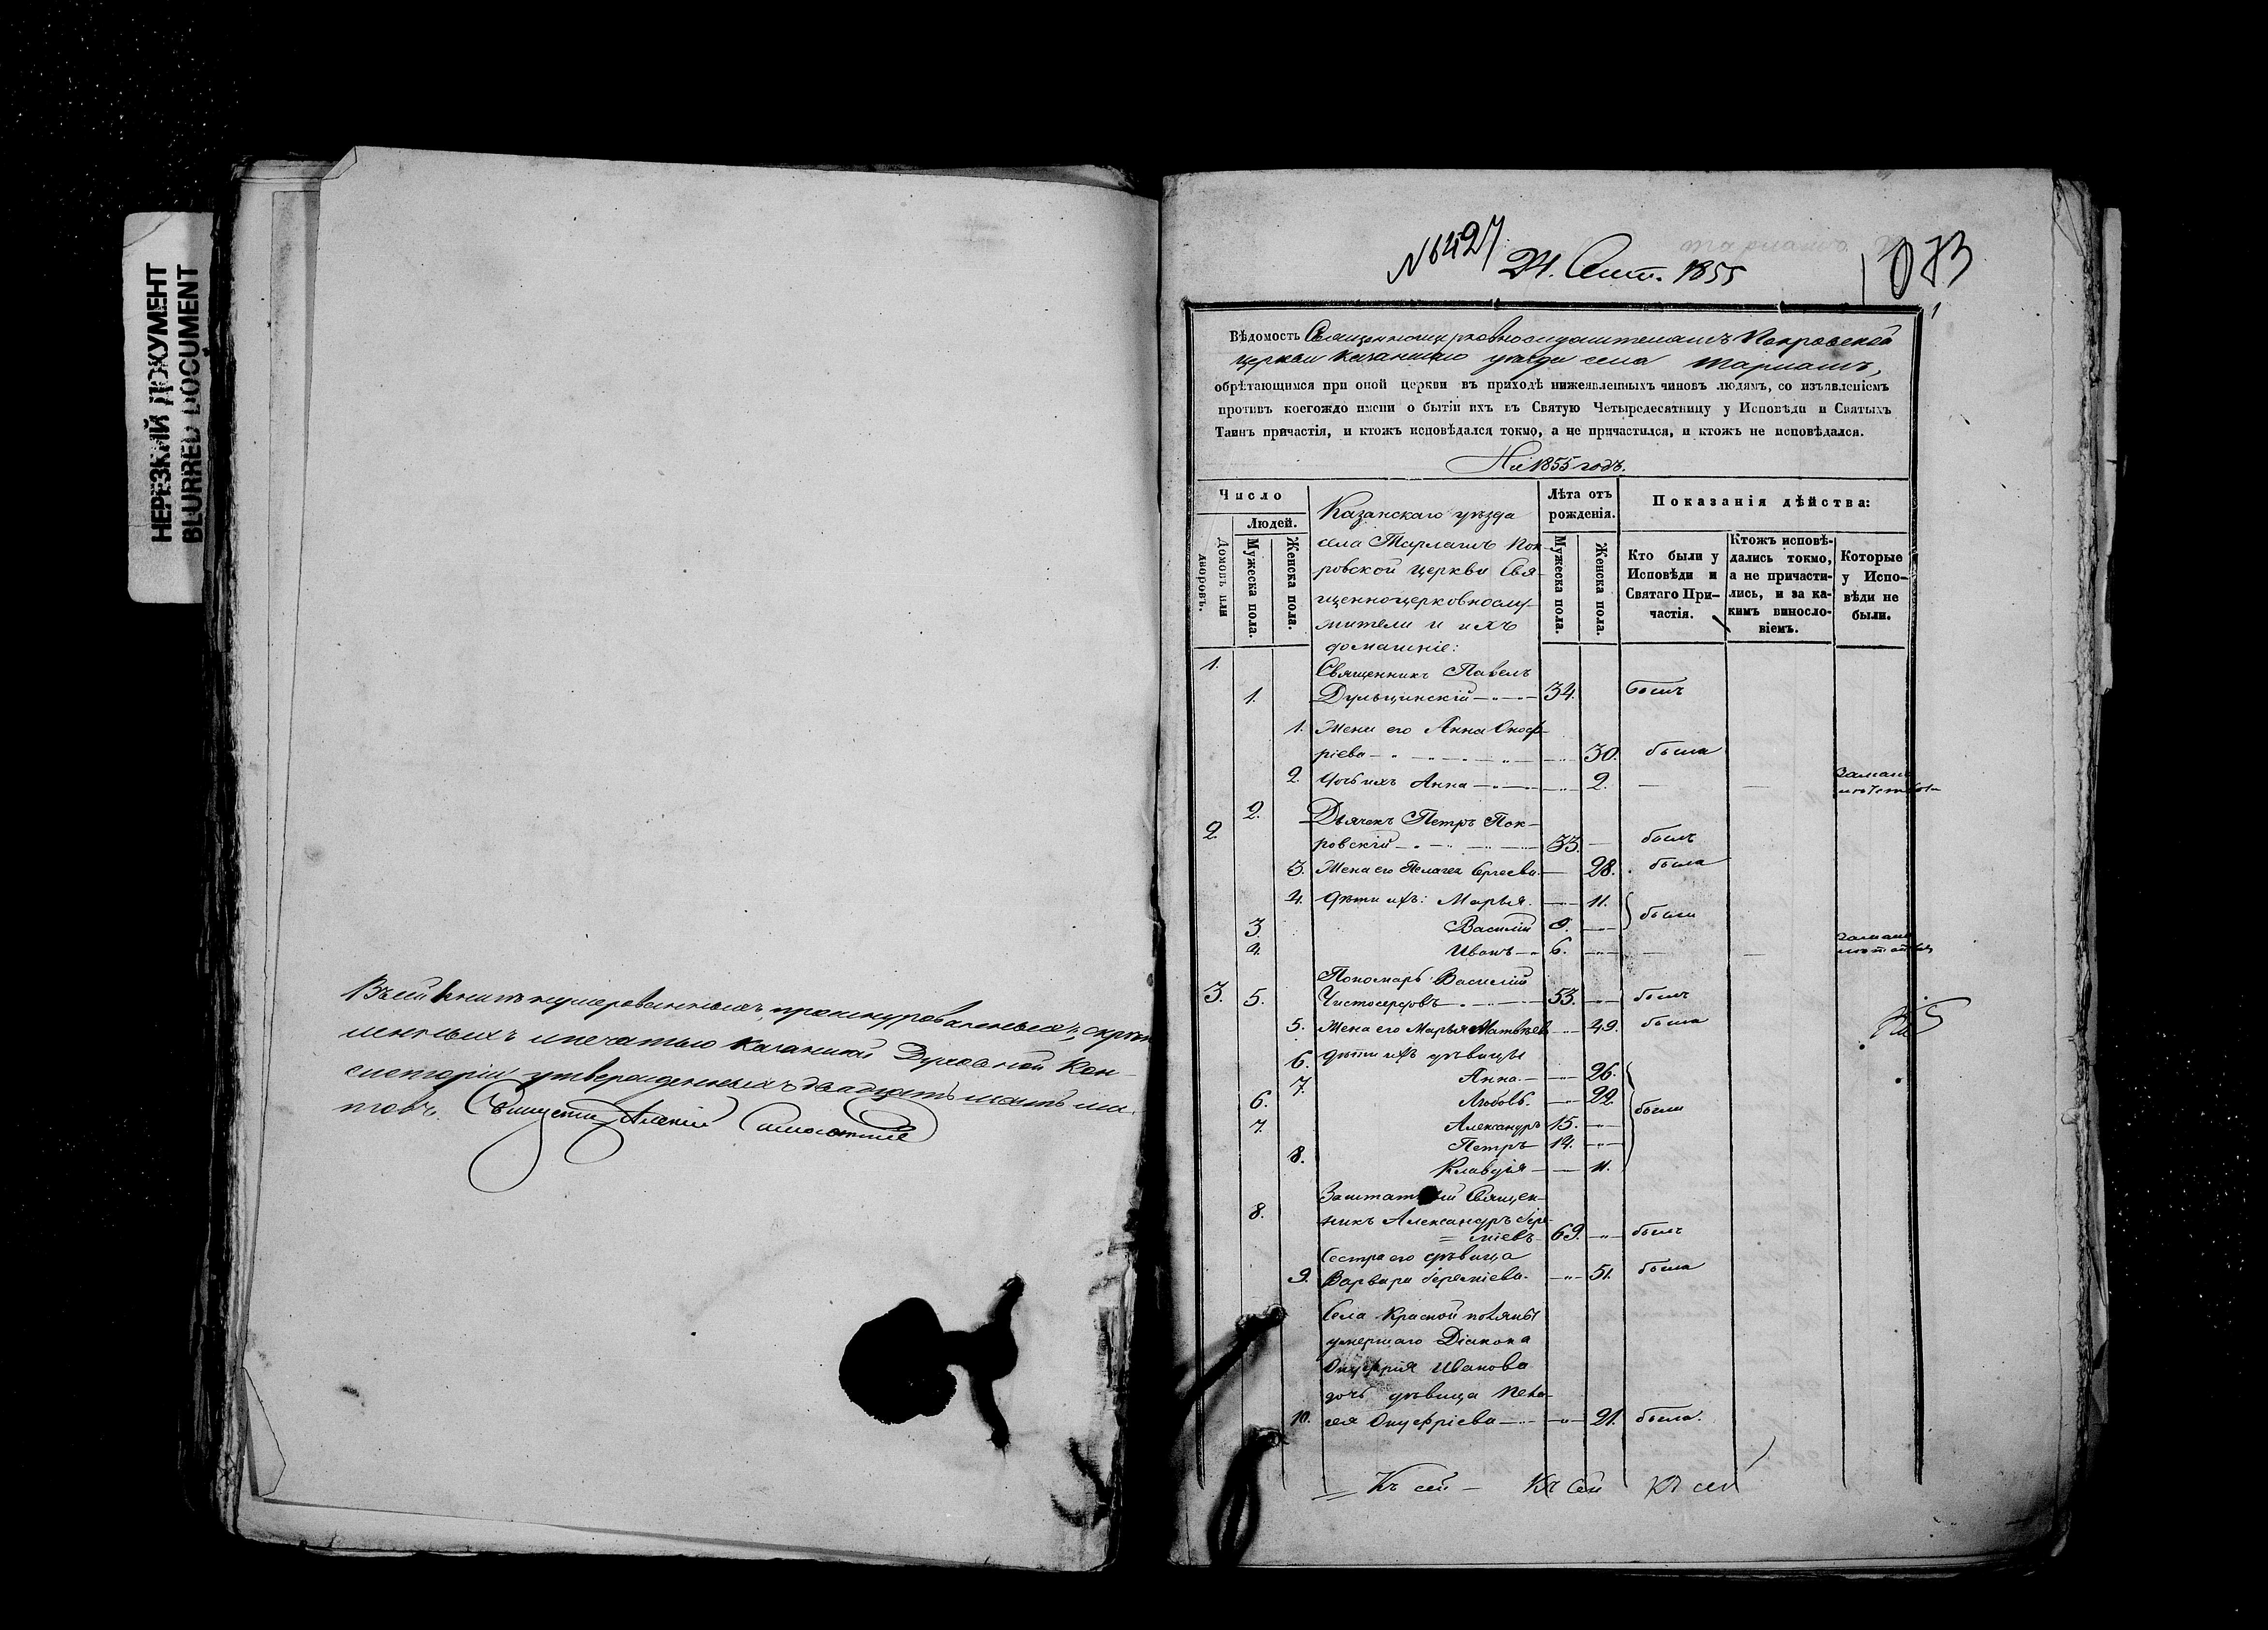 НЕРЕЗКИЙ ДОКУМЕНТ
BLURRED DOCUMENT
Въ сей книгѣ нумерованныхъ, прошнурованныхъ, скрѣп
ленныхъ и печатью Казанской Духовной Кон-
систоріи утвержденныхъ двадцать шесть лис
товъ.
№ 427
24. Сент. 1855
Тарлашъ
Вѣдомость Священноцерковнослужителямъ Покровской
церкви Казанскаго уѣзда села Тарлашъ,
обрѣтающимся при оной церкви въ приходѣ нижеявленныхъ чиновъ людямъ, со изъявленіемъ
противъ коегождо имени о бытіи ихъ въ Святую Четыредесятницу у Исповѣди и Святыхъ
Таинъ причастія, и ктожъ исповѣдался токмо, а не причастился, и ктожъ не исповѣдался.
На 1855 годъ.
Число
Людей.
Домовъ или
дворовъ.
Мужеска пола.
Женска пола.
Казанскаго уѣзда
села Тарлашъ Пок-
ровской церкви Свя-
щенноцерковнослу-
жители и ихъ
домашніе:
Лѣта отъ
рожденія.
Мужеска пола.
Женска пола.
Показанія дѣйства:
Кто были у
Исповѣди и
Святаго При-
частія.
Ктожъ исповѣ-
дались токмо,
а не причасти-
лись, и за ка-
кимъ винослo-
віемъ.
Которые
у Испо-
вѣди не
были.
1.
Священникъ Павелъ
1. Дульцинскій 34. былъ
1. Жена его Анна Оноф-
ріева 30. была
2. Дочь ихъ Анна 2. за мало-
лѣтствомъ
2. 2. Дьячекъ Петръ Пок-
ровскій 33. былъ
3. Жена его Пелагея Сергеева 28. была
4. Дѣти ихъ: Марья 11.
3. Василій 9. были
4. Иванъ 6. за мало
лѣтствомъ
Пономарь Василій
3. 5. Чистосердовъ 53. былъ
5. Жена его Марья Матвѣева 49. была
6. дѣти ихъ дѣвицы
7. Анна 26.
6. Любовь 22. были
7. Александръ 15.
Петръ 14.
8. Клавдія 11.
Заштатный Священ-
8. никъ Александръ Ере-
= міевъ 69. былъ
Сестра его дѣвица
9. Варвара Ереміева 51. была
Села Красной поляны
умершаго Діакона
Онуфрія Иванова
дочь дѣвица Пела-
10. гея Онуфріева 21. была.
Къ сей Къ сей Къ сей